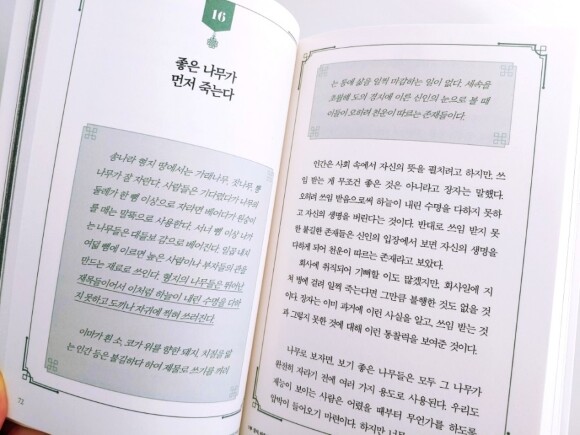 16
좋은 나무가
먼저 죽는다
송나라 형지 땅에서는 가래나무, 잣나무, 뽕
나무가 잘 자란다. 사람들은 기다렸다가 나무의
둘레가 한 뼘 이상으로 자라면 베어다가 원숭이
를 매는 말뚝으로 사용한다. 서너 뼘 이상 나가
는 나무들은 대들보 감으로 베어진다. 일곱 내지
여덟 뼘에 이르면 높은 사람이나 부자들의 관을
만드는 재료로 쓰인다. 형지의 나무들은 뛰어난
재목들이어서 이처럼 하늘이 내린 수명을 다하
지 못하고 도끼나 자귀에 찍혀 쓰러진다.
이마가 흰 소, 코가 위를 향한 돼지, 치질을 앓
는 인간 등은 불길하다 하여 제물로 쓰기를 꺼려
72
는 등에 삶을 일찍 마감하는 일이 없다. 세속을
초월해 도의 경지에 이른 신인의 눈으로 볼 때
이들이 오히려 천운이 따르는 존재들이다.
인간은 사회 속에서 자신의 뜻을 펼치려고 하지만, 쓰
임 받는 게 무조건 좋은 것은 아니라고 장자는 말했다.
오히려 쓰임 받음으로써 하늘이 내린 수명을 다하지 못하
고 자신의 생명을 버린다는 것이다. 반대로 쓰임 받지 못
한 불길한 존재들은 신인의 입장에서 보면 자신의 생명을
다하게 되어 천운이 따르는 존재라고 보았다.
회사에 취직되어 기뻐할 이도 많겠지만, 회사일에 지
쳐 병에 걸려 일찍 죽는다면 그만큼 불행한 것도 없을 것
이다. 장자는 이미 과거에 이런 사실을 알고, 쓰임 받는 것
과 그렇지 못한 것에 대해 이런 통찰력을 보여준 것이다.
나무로 보자면, 보기 좋은 나무들은 모두 그 나무가
완전히 자라기 전에 여러 가지 용도로 사용된다. 우리도
재능이 보이는 사람은 어렸을 때부터 무언가를 하도록
압박이 들어오기 마련이다. 하지만 너무